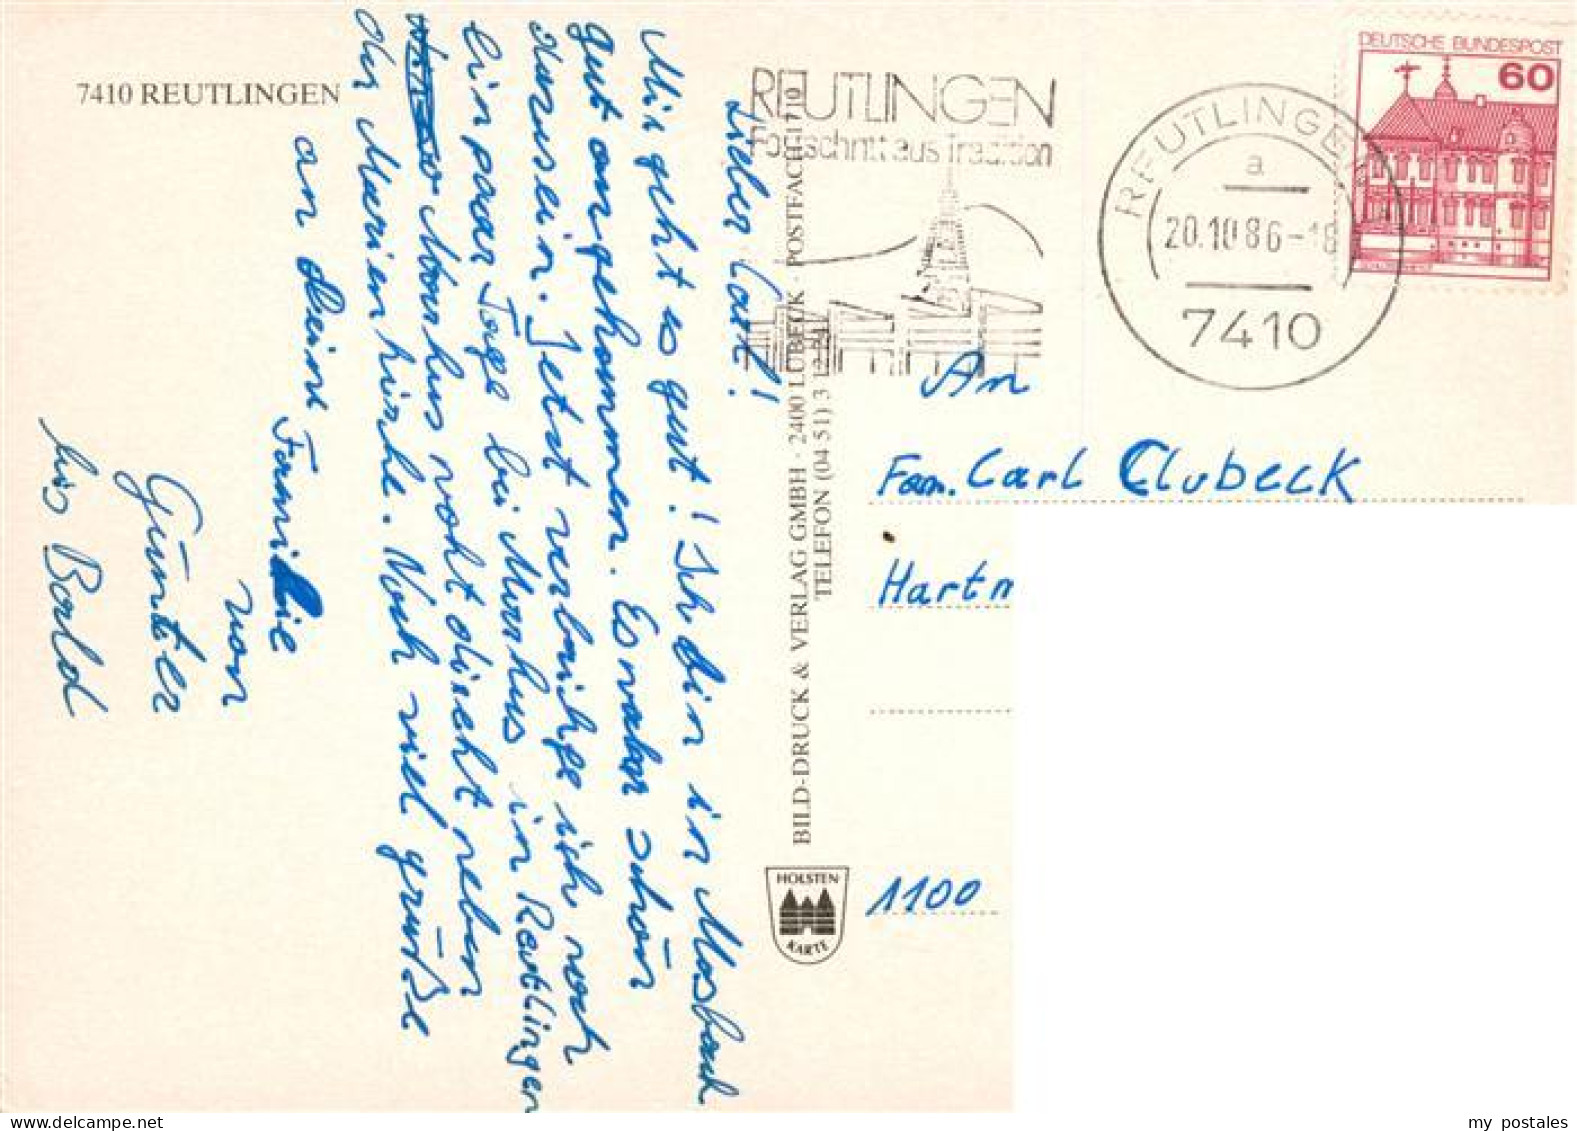 7410 REUTLINGEN
Lieber Carl!
Mir geht es gut! Ich bin in Mosbach
gut angekommen. Es war schön
dazusein. Jetzt verbringe ich noch
ein paar Tage bei Markus in Reutlingen
Markus wohnt direkt neben
der Marienkirche. Noch viel grüße
an deine Familie
von
Günter
bis Bald
BILD-DRUCK & VERLAG GMBH · 2400 LÜBECK · POSTFACH 1710
TELEFON (04 51) 3
HOLSTEN
KARTE
REUTLINGEN
Fortschritt aus Tradition
REUTLINGEN
a
20.10.86-18
7410
DEUTSCHE BUNDESPOST
60
An
Fam. Carl Clubeck
Hartm
1100
my postales